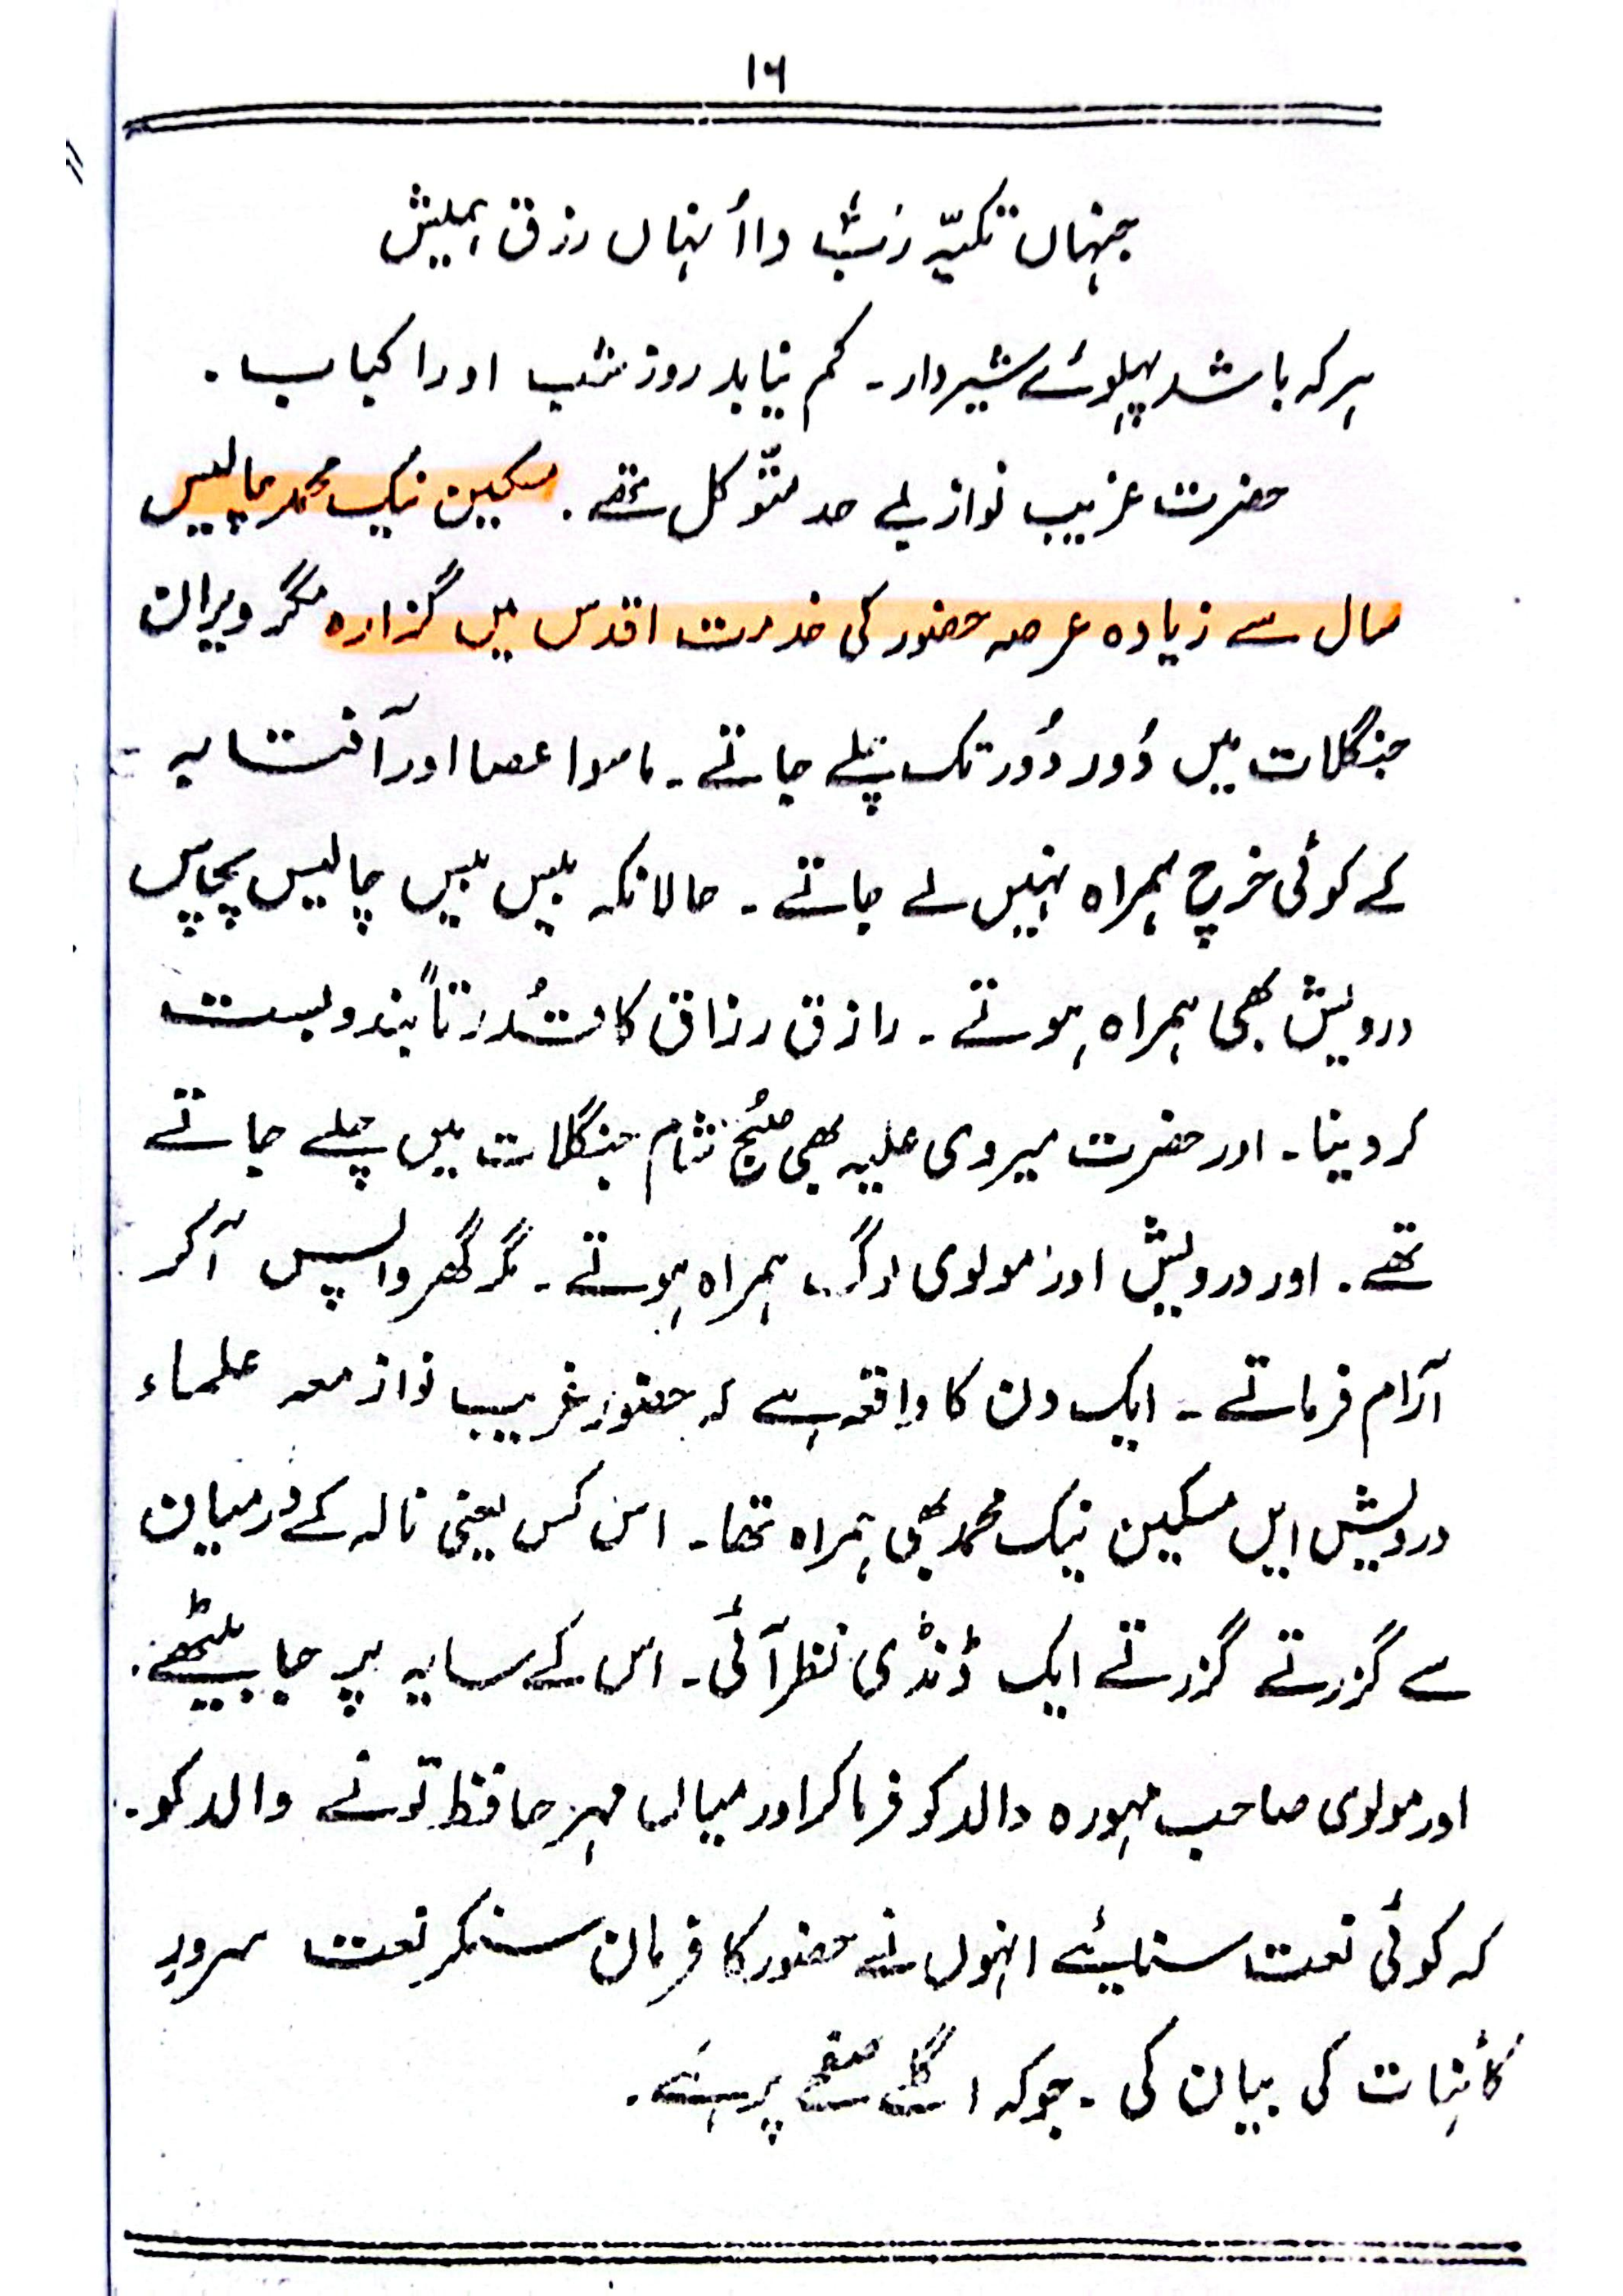 ۱۶
جنہاں تکیہّ رَبّ دا اُنہاں رزق ہمیش
ہر کہ باشد پہلوئے شیردار۔ کم نیابد روز شب اورا کباب۔
حضرت غریب نواز بے حد متوّکل تھے۔ مسکین نیک محمد چالیس
سال سے زیادہ عرصہ حضور کی خدمت اقدس میں گزارہ مگر ویران
جنگلات میں دُور دُور تک چلے جاتے۔ ماسوا عصا اور آفتابہ
کے کوئی خرچ ہمراہ نہیں لے جاتے۔ حالانکہ بیس بیس چالیس پچاس
درویش بھی ہمراہ ہوتے۔ رازق رزاق کا قُدرتاً بندوبست
کر دیتا۔ اور حضرت میروی علیہ بھی صبُح شام جنگلات میں چلے جاتے
تھے۔ اور درویش اور مولوی لوگ ہمراہ ہوتے۔ مگر گھر واپس آکر
آرام فرماتے۔ ایک دن کا واقعہ ہے کہ حضور غریب نواز معہ علماء
درویش ایں مسکین نیک محمد بھی ہمراہ تھا۔ اس کس یعنی نالہ کے درمیان
سے گزرتے گزرتے ایک ڈنڈی نظر آئی۔ اس کے سایہ پر جا بیٹھے۔
اور مولوی صاحب مہورہ والد کو فرما کر اور میاں مہر حافظ تونے والد کو۔
کہ کوئی نعت سنایئے انہوں نے حضور کا فرمان سنکر نعت سرورِ
کائنات کی بیان کی۔ جوکہ اگلے صفحے پر ہے۔